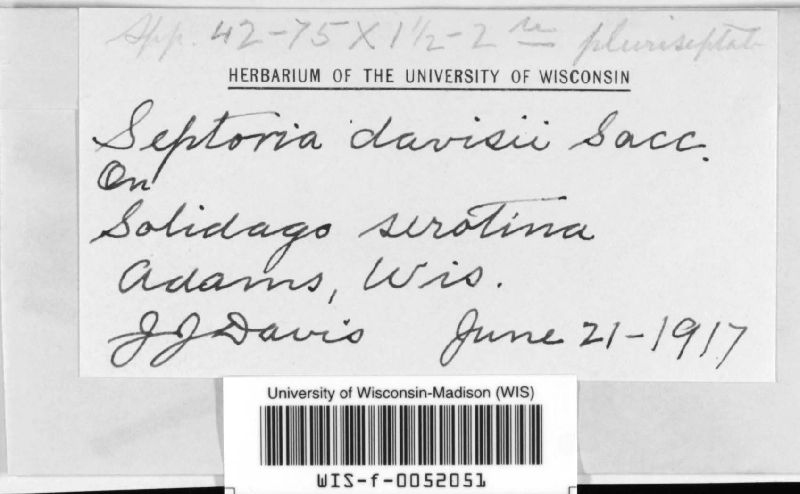 spp. 42-75 X 1½-2 pluriseptat
HERBARIUM OF THE UNIVERSITY OF WISCONSIN
Septoria davisii Sacc.
On
Solidago serotina
Adams, Wis.
J J Davis June 21-1917
University of Wisconsin-Madison (WIS)
WIS-f-0052051